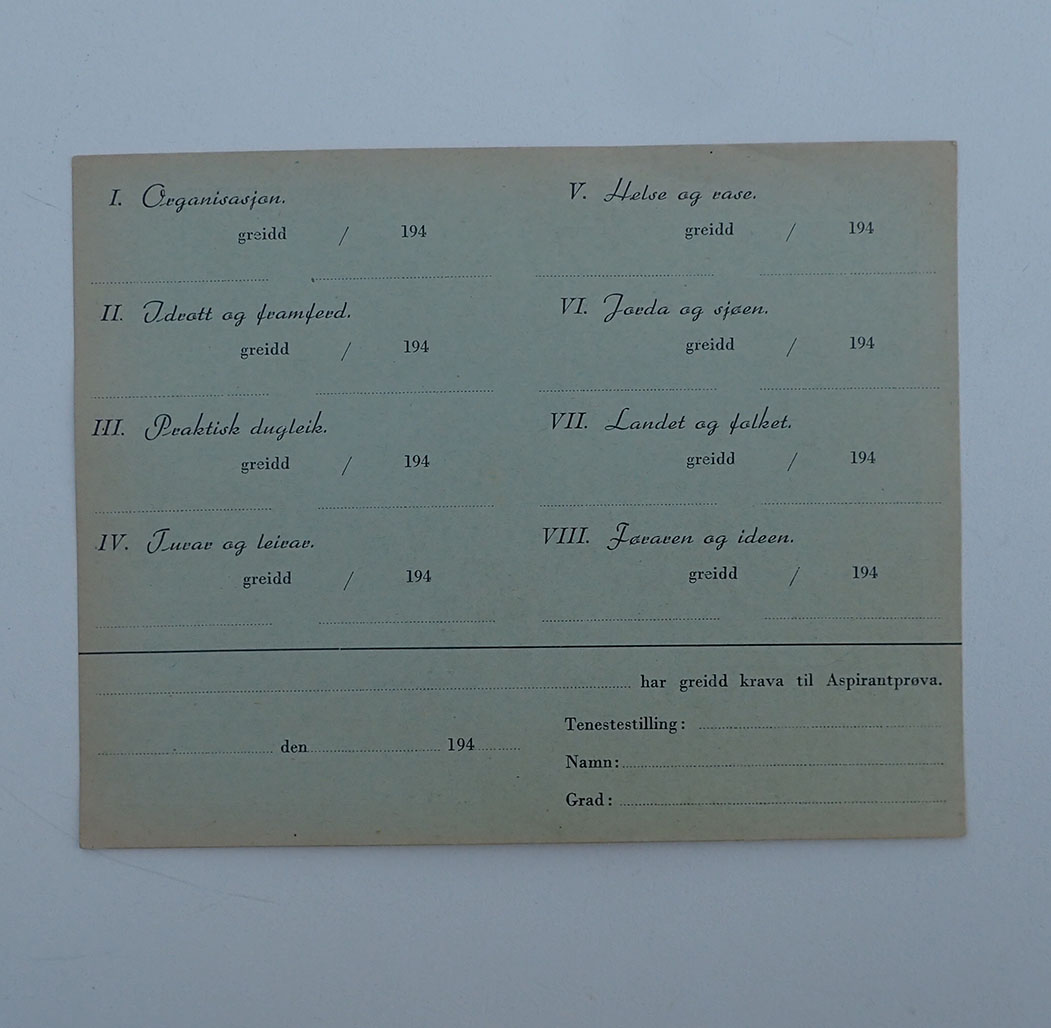 I. Organisasjon.
greidd / 194
II. Idrott og framferd.
greidd / 194
III. Praktisk dugleik.
greidd / 194
IV. Turar og leirar.
greidd / 194
V. Helse og rase.
greidd / 194
VI. Jorda og sjøen.
greidd / 194
VII. Landet og folket.
greidd / 194
VIII. Føraren og ideen.
greidd / 194
har greidd krava til Aspirantprøva.
den 194
Tenestestilling:
Namn:
Grad: